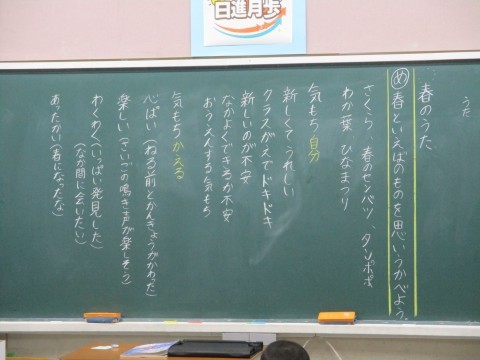 日進月歩
うた
春のうた
め 春といえばのものを思いうかべよう。
さくら、春のセンバツ、タンポポ
わか葉、ひなまつり
気もち 自分
新しくてうれしい
クラスがえでドキドキ
新しいのが不安
なかよくできるか不安
おうえんする気もち
気もち かえる
心ぱい(ねる前とかんきょうがかわった)
楽しい(さいごの鳴き声が楽しそう)
わくわく(いっぱい発見した)
(なか間に会いたい)
あったかい(春になったな)